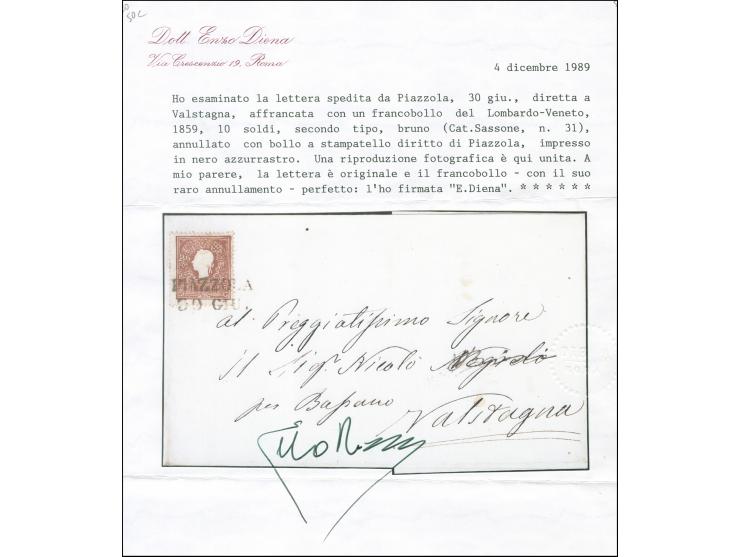 50c
Dott. Enzo Diena
Via Crescenzio 19, Roma
4 dicembre 1989
Ho esaminato la lettera spedita da Piazzola, 30 giu., diretta a
Valstagna, affrancata con un francobollo del Lombardo-Veneto,
1859, 10 soldi, secondo tipo, bruno (Cat.Sassone, n. 31),
annullato con bollo a stampatello diritto di Piazzola, impresso
in nero azzurrastro. Una riproduzione fotografica è qui unita. A
mio parere, la lettera è originale e il francobollo - con il suo
raro annullamento - perfetto: l'ho firmata "E.Diena". * * * * * *
PIAZZOLA
30 GIU.
Al Preggiatissimo Signore
il Sigr. Nicolò
per Bassano
Valstagna